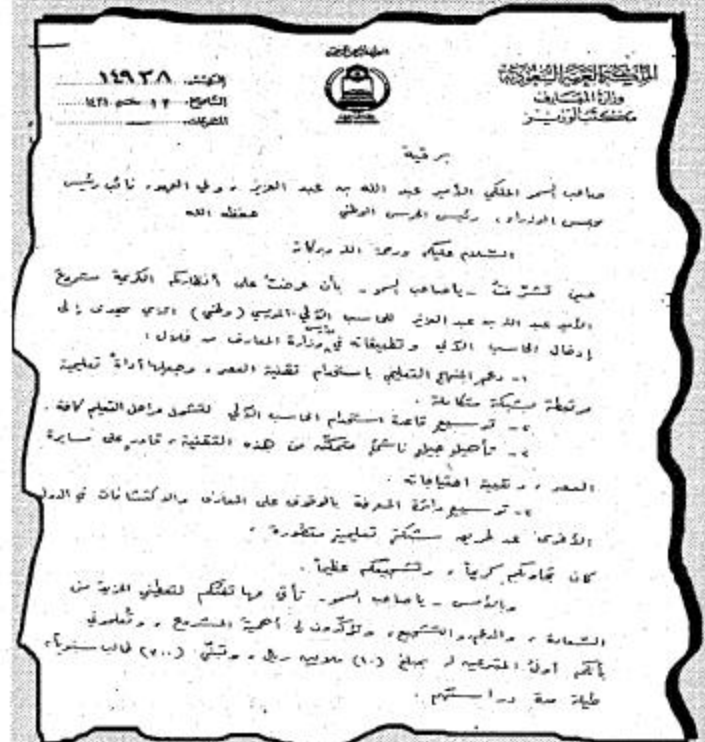 المملكة العربية السعودية
وزارة المعارف
مكتب الوزير
الرقم ١٤٩٣٨
التاريخ ١٤٢١
المرفقات
برقية
صاحب السمو الملكي الأمير عبد الله بن عبد العزيز ، ولي العهد ، نائب رئيس
مجلس الوزراء ، رئيس الحرس الوطني حفظه الله
السلام عليكم ورحمة الله وبركاته
حين تشرّفتُ - يا صاحب السمو - بأن عرضتُ على أنظاركم الكريمة مشروع
الأمير عبد الله بن عبد العزيز للحاسب الآلي المدرسي (وطني) الذي يهدف إلى
إدخال الحاسب الآلي وتطبيقاته في مدارس وزارة المعارف من خلال :
١- دعم المنهج التعليمي باستخدام تقنية العصر ، وجعلها أداة تعليمية
مرتبطة بشبكة متكاملة .
٢- توسيع قاعدة استخدام الحاسب الآلي لتشمل مراحل التعليم كافة .
٣- تأهيل جيل ناشئ متمكّن من هذه التقنية ، قادر على مسايرة
العصر ، وتلبية احتياجاته .
٤- توسيع دائرة المعرفة بالوقوف على المعارف والاكتشافات في الدول
الأخرى عن طريق شبكة تعليمية متطورة .
كان تجاوبكم كريماً ، وتشجيعكم عظيماً .
وبالأمس - يا صاحب السمو - تأتي مهاتفتكم لتعطيني المزيد من
السعادة ، والدعم والتشجيع ، وتؤكّدون لي أهمية المشروع ، وتُعلموني
بأنكم أول المتبرعين له بمبلغ (١٠) ملايين ريال ، وتبنّي (٣٠٠) طالب سنوياً ،
طيلة مدة دراستهم .